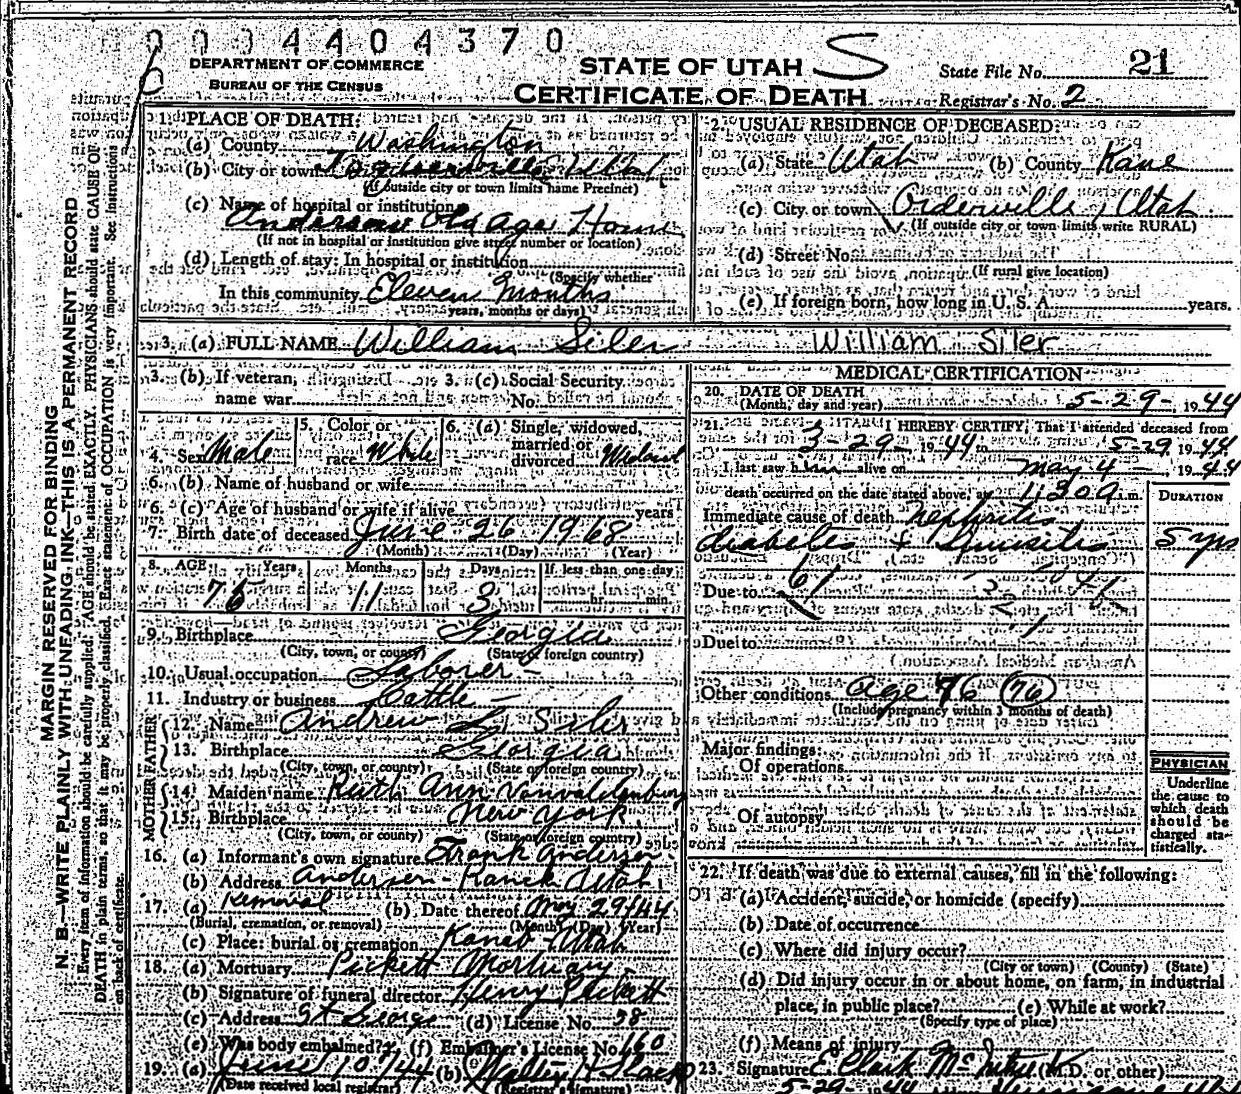 0 0 3 4 4 0 4 3 7 0
DEPARTMENT OF COMMERCE
BUREAU OF THE CENSUS
STATE OF UTAH S
CERTIFICATE OF DEATH
State File No. 21
Registrar's No. 2
MARGIN RESERVED FOR BINDING
N. B.—WRITE PLAINLY WITH UNFADING INK—THIS IS A PERMANENT RECORD
Every item of information should be carefully supplied. AGE should be stated EXACTLY. PHYSICIANS should state CAUSE OF
DEATH in plain terms, so that it may be properly classified. Exact statement of OCCUPATION is very important. See instructions
on back of certificate.
1. PLACE OF DEATH:
(a) County Washington
(b) City or town Utah
(If outside city or town limits name Precinct)
(c) Name of hospital or institution
Anderson Old Age Home
(If not in hospital or institution give street number or location)
(d) Length of stay: In hospital or institution
(Specify whether
In this community Eleven Months
years, months or days)
2. USUAL RESIDENCE OF DECEASED:
(a) State Utah (b) County Kane
(c) City or town Orderville, Utah
(If outside city or town limits write RURAL)
(d) Street No.
(If rural give location)
(e) If foreign born, how long in U. S. A. years.
3. (a) FULL NAME William Siler William Siler
3. (b) If veteran, name war
3. (c) Social Security No.
4. Sex Male
5. Color or race White
6. (a) Single, widowed, married or divorced
6. (b) Name of husband or wife
6. (c) Age of husband or wife if alive years
7. Birth date of deceased June 26 1968
(Month) (Day) (Year)
8. AGE Years Months Days If less than one day
75 11 3 hr. min.
9. Birthplace Georgia
(City, town, or county) (State or foreign country)
10. Usual occupation Laborer -
11. Industry or business Cattle -
FATHER
12. Name Andrew L. Siler
13. Birthplace Georgia
(City, town, or county) (State or foreign country)
MOTHER
14. Maiden name Ruth Ann Vanvaldenburg
15. Birthplace New York
(City, town, or county) (State or foreign country)
16. (a) Informant's own signature Frank Anderson
(b) Address Anderson - Ranch Utah
17. (a) Removal (b) Date thereof May 29/44
(Burial, cremation, or removal) (Month) (Day) (Year)
(c) Place: burial or cremation Kanab Utah
18. (a) Mortuary Pickett Mortuary
(b) Signature of funeral director Henry Pickett
(c) Address St George (d) License No. 58
(e) Was body embalmed? (f) Embalmer's License No. 160
19. (a) June 10/44 (b)
(Date received local registrar) (Registrar's signature)
MEDICAL CERTIFICATION
20. DATE OF DEATH
(Month, day and year) 5-29-, 1944
21. I HEREBY CERTIFY, That I attended deceased from
3-29- 1944 to 5-29 1944
I last saw him alive on May 4 - 1944
death occurred on the date stated above, at 11:30 a.m.
DURATION
Immediate cause of death nephritis
diabetes + 5 yrs
Due to 61
Due to
Other conditions Age 76 (76)
(Include pregnancy within 3 months of death)
Major findings:
Of operations
Of autopsy
PHYSICIAN
Underline
the cause to
which death
should be
charged sta-
tistically.
22. If death was due to external causes, fill in the following:
(a) Accident, suicide, or homicide (specify)
(b) Date of occurrence
(c) Where did injury occur?
(City or town) (County) (State)
(d) Did injury occur in or about home, on farm, in industrial
place, in public place? (e) While at work?
(Specify type of place)
(f) Means of injury
23. Signature E Clark (M.D. or other)
5-29- 1944